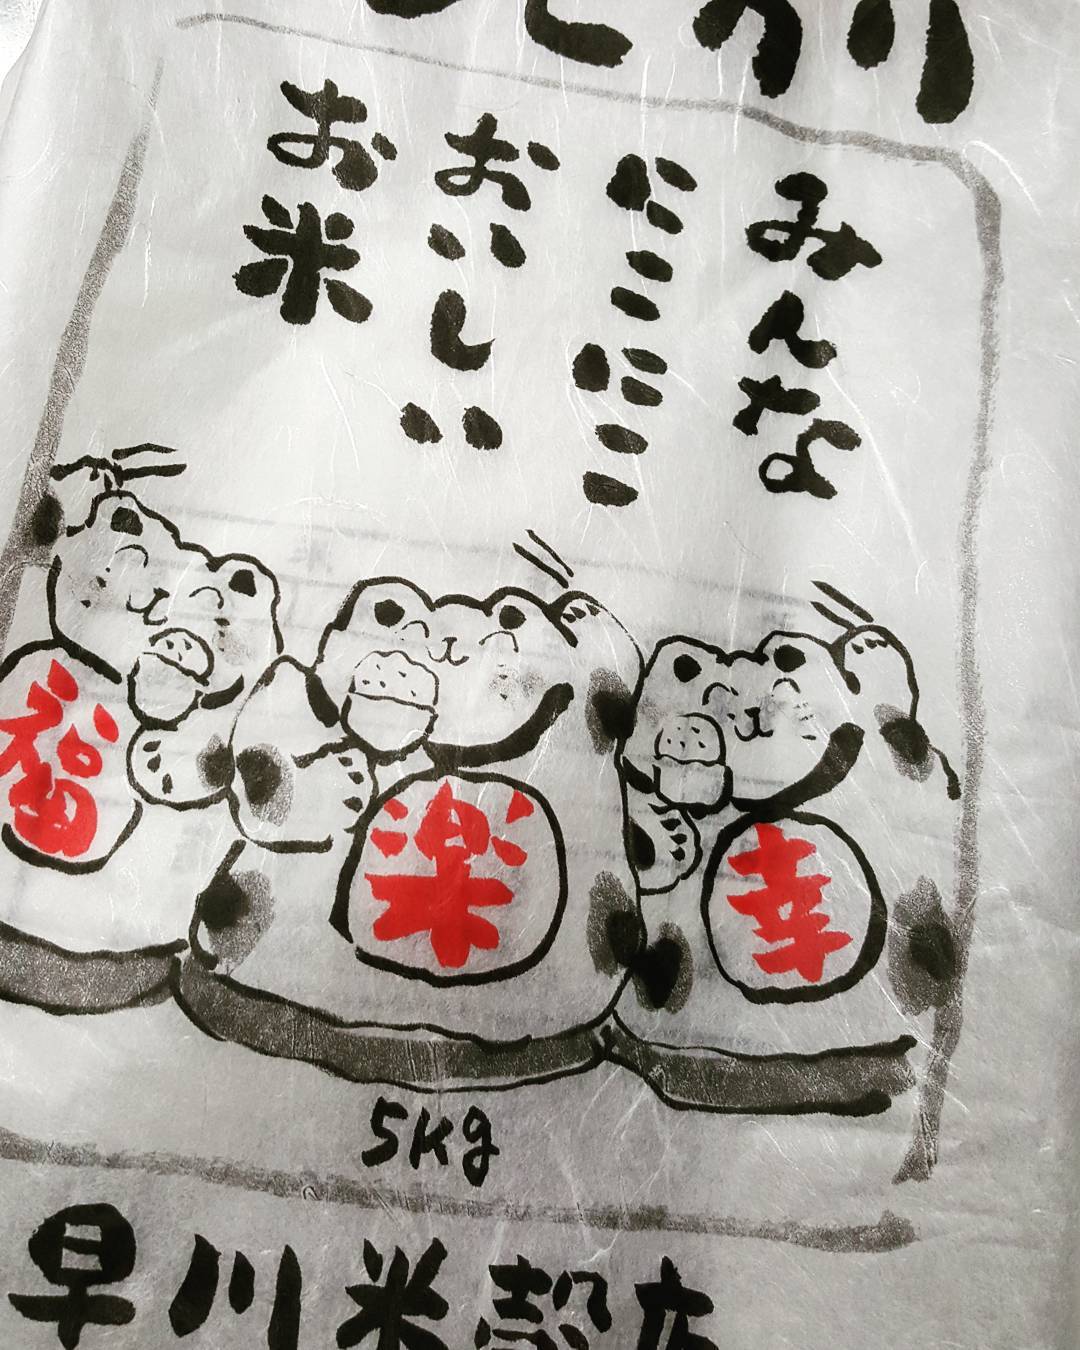 みんな
にこにこ
おいしい
お米
福
楽
幸
5kg
早川米穀店